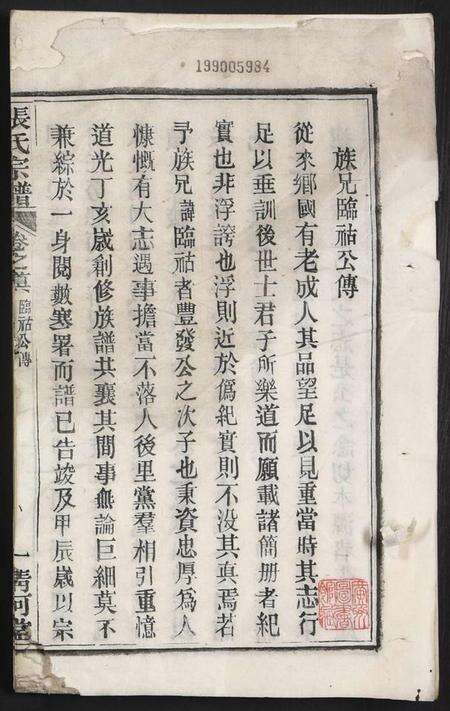 199005984
族兄臨祜公傳
從來鄉國有老成人其品望足以見重當時其志行
足以垂訓後世士君子所樂道而願載諸簡册者紀
實也非浮誇也浮則近於僞紀實則不没其真焉若
予族兄諱臨祜者豐發公之次子也秉資忠厚爲人
慷慨有大志遇事擔當不落人後里黨羣相引重憶
道光丁亥歲創修族譜其襄其間事無論巨細莫不
兼綜於一身閱數寒署而譜已告竣及甲辰歲以宗
張氏宗譜
卷之
臨祜公傳
一
清河堂